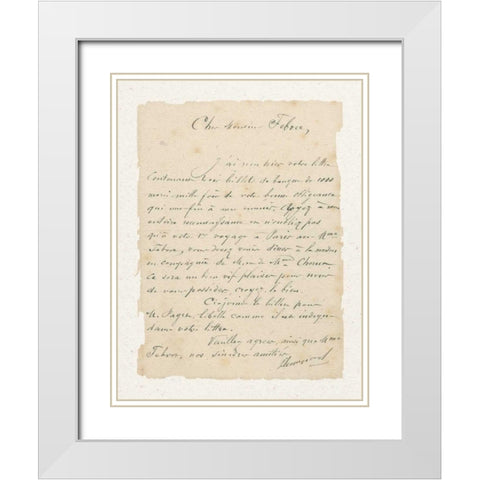 Cher Monsieur Febvre,
J'ai reçu hier votre lettre
contenant trois billets de banque de 1000
merci mille fois de votre bonne obligeance
qui met fin à mes ennuis. Croyez à
entière reconnaissance en n'oubliez pas
qu'à votre 1er voyage à Paris avec Mme
Febvre, vous devez venir dîner à la maison
en compagnie de M. & de Mme
Ce sera un bien vif plaisir pour nous
de vous posséder, croyez le bien.
Ci-joint le billet pour
M. Pagès, libellé comme il est indiqué
dans votre lettre.
Veuillez agréer, ainsi que Mme
Febvre, nos sincères amitiés